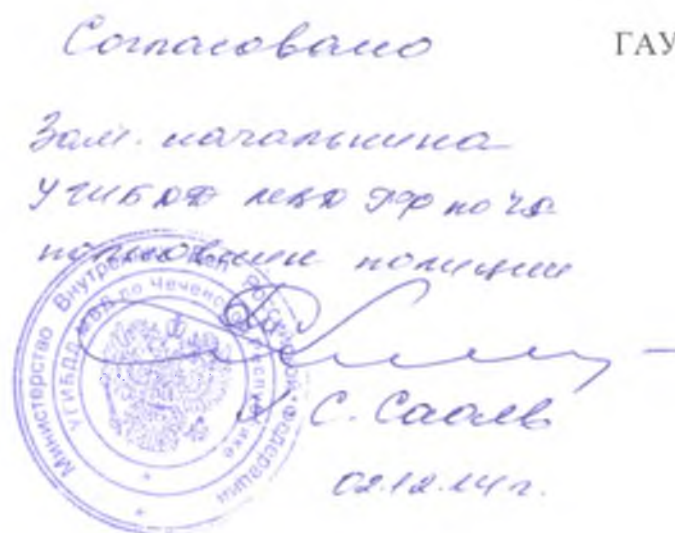 Согласовано
ГАУ
Зам. начальника
УГИБДД МВД РФ по ЧР
полковник полиции
Министерство Внутренних Дел Российской Федерации
УГИБДД МВД по Чеченской Республике
С.
02.12.14г.